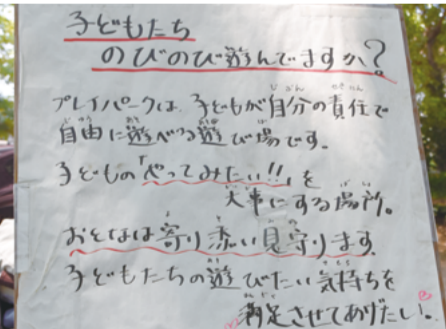 子どもたち
のびのび遊んでますか?
プレイパークは、子どもが自分の責任で
自由に遊べる遊び場です。
子どもの「やってみたい!!」を
大事にする場所。
おとなは寄り添い見守ります。
子どもたちの遊びたい気持ちを
満足させてあげたい。